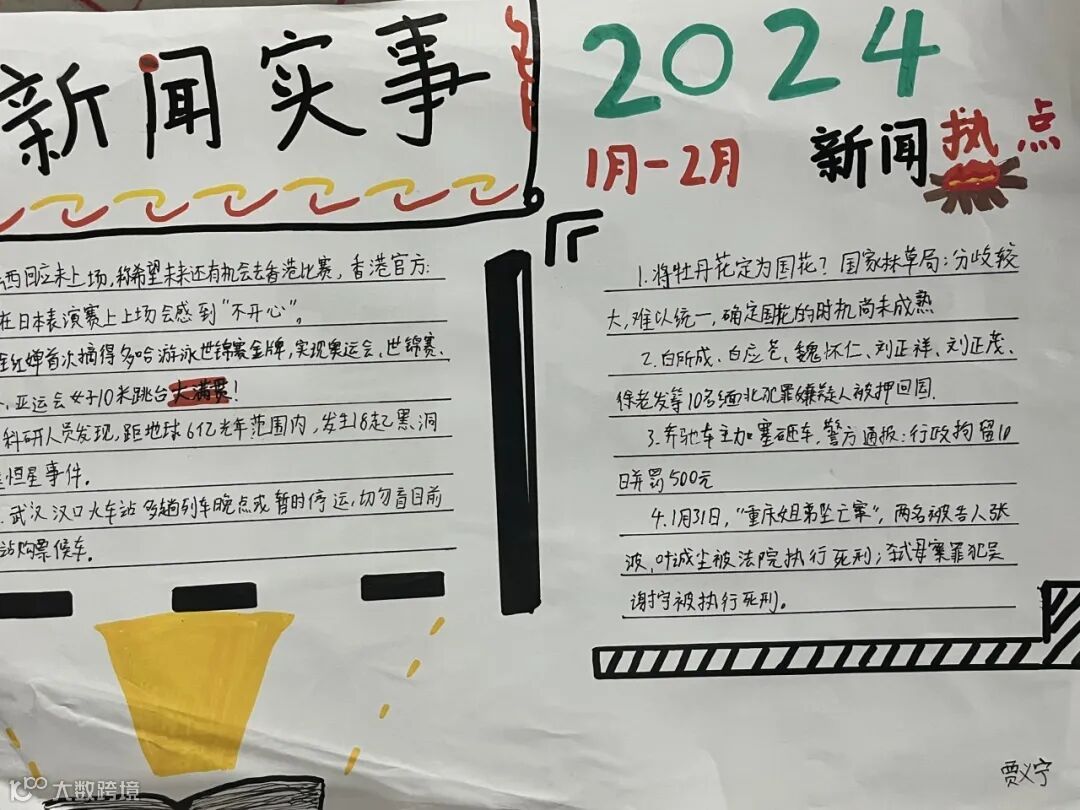 新闻实事
西回应未上场,称希望未来还有机会去香港比赛,香港官方:
在日本表演赛上上场会感到“不开心”。
全红婵首次摘得多哈游泳世锦赛金牌,实现奥运会、世锦赛、
、亚运会女子10米跳台大满贯!
科研人员发现,距地球6亿光年范围内,发生18起黑洞
恒星事件。
武汉汉口火车站多趟列车晚点或暂时停运,切勿盲目前
站购票候车。
2024
1月-2月
新闻热点
1.将牡丹花定为国花?国家林草局:分歧较
大,难以统一,确定国花的时机尚未成熟
2.白所成、白应苍、魏怀仁、刘正祥、刘正茂、
徐老发等10名缅北犯罪嫌疑人被押回国.
3.奔驰车主加塞砸车,警方通报:行政拘留10
日并罚500元
4.1月31日,“重庆姐弟坠亡案”,两名被告人张
波、叶诚尘被法院执行死刑;弑母案罪犯吴
谢宇被执行死刑。
贾义宁
大数跨境